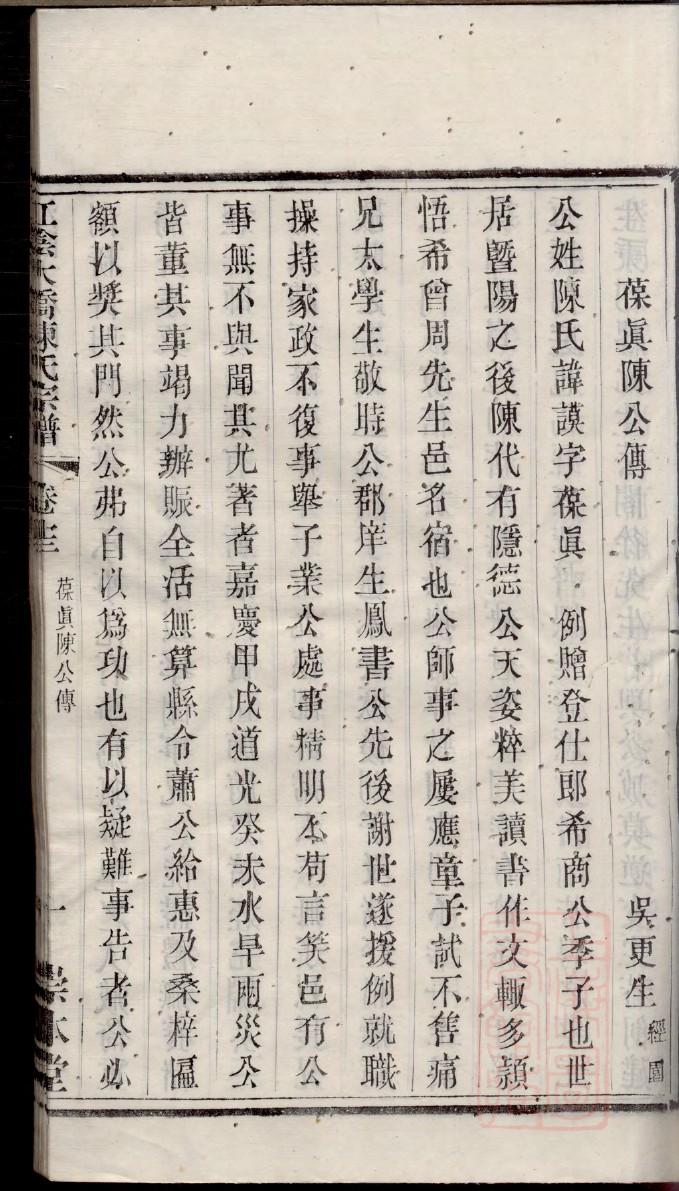 葆眞陳公傳　吳更生經園
公姓陳氏諱謨字葆眞　例贈登仕郎希商公季子也世
居暨陽之後陳代有隱德公天姿粹美讀書作文輙多頴
悟希曾周先生邑名宿也公師事之屢應童子試不售痛
兄太學生敬時公郡庠生鳳書公先後謝世遂援例就職
操持家政不復事舉子業公處事精明不苟言笑邑有公
事無不與聞其尤著者嘉慶甲戌道光癸未水旱兩災公
皆董其事竭力辦賑全活無算縣令蕭公給惠及桑梓匾
額以奬其門然公弗自以爲功也有以疑難事告者公必
江陰大橋陳氏宗譜　卷　葆眞陳公傳　一　崇本堂